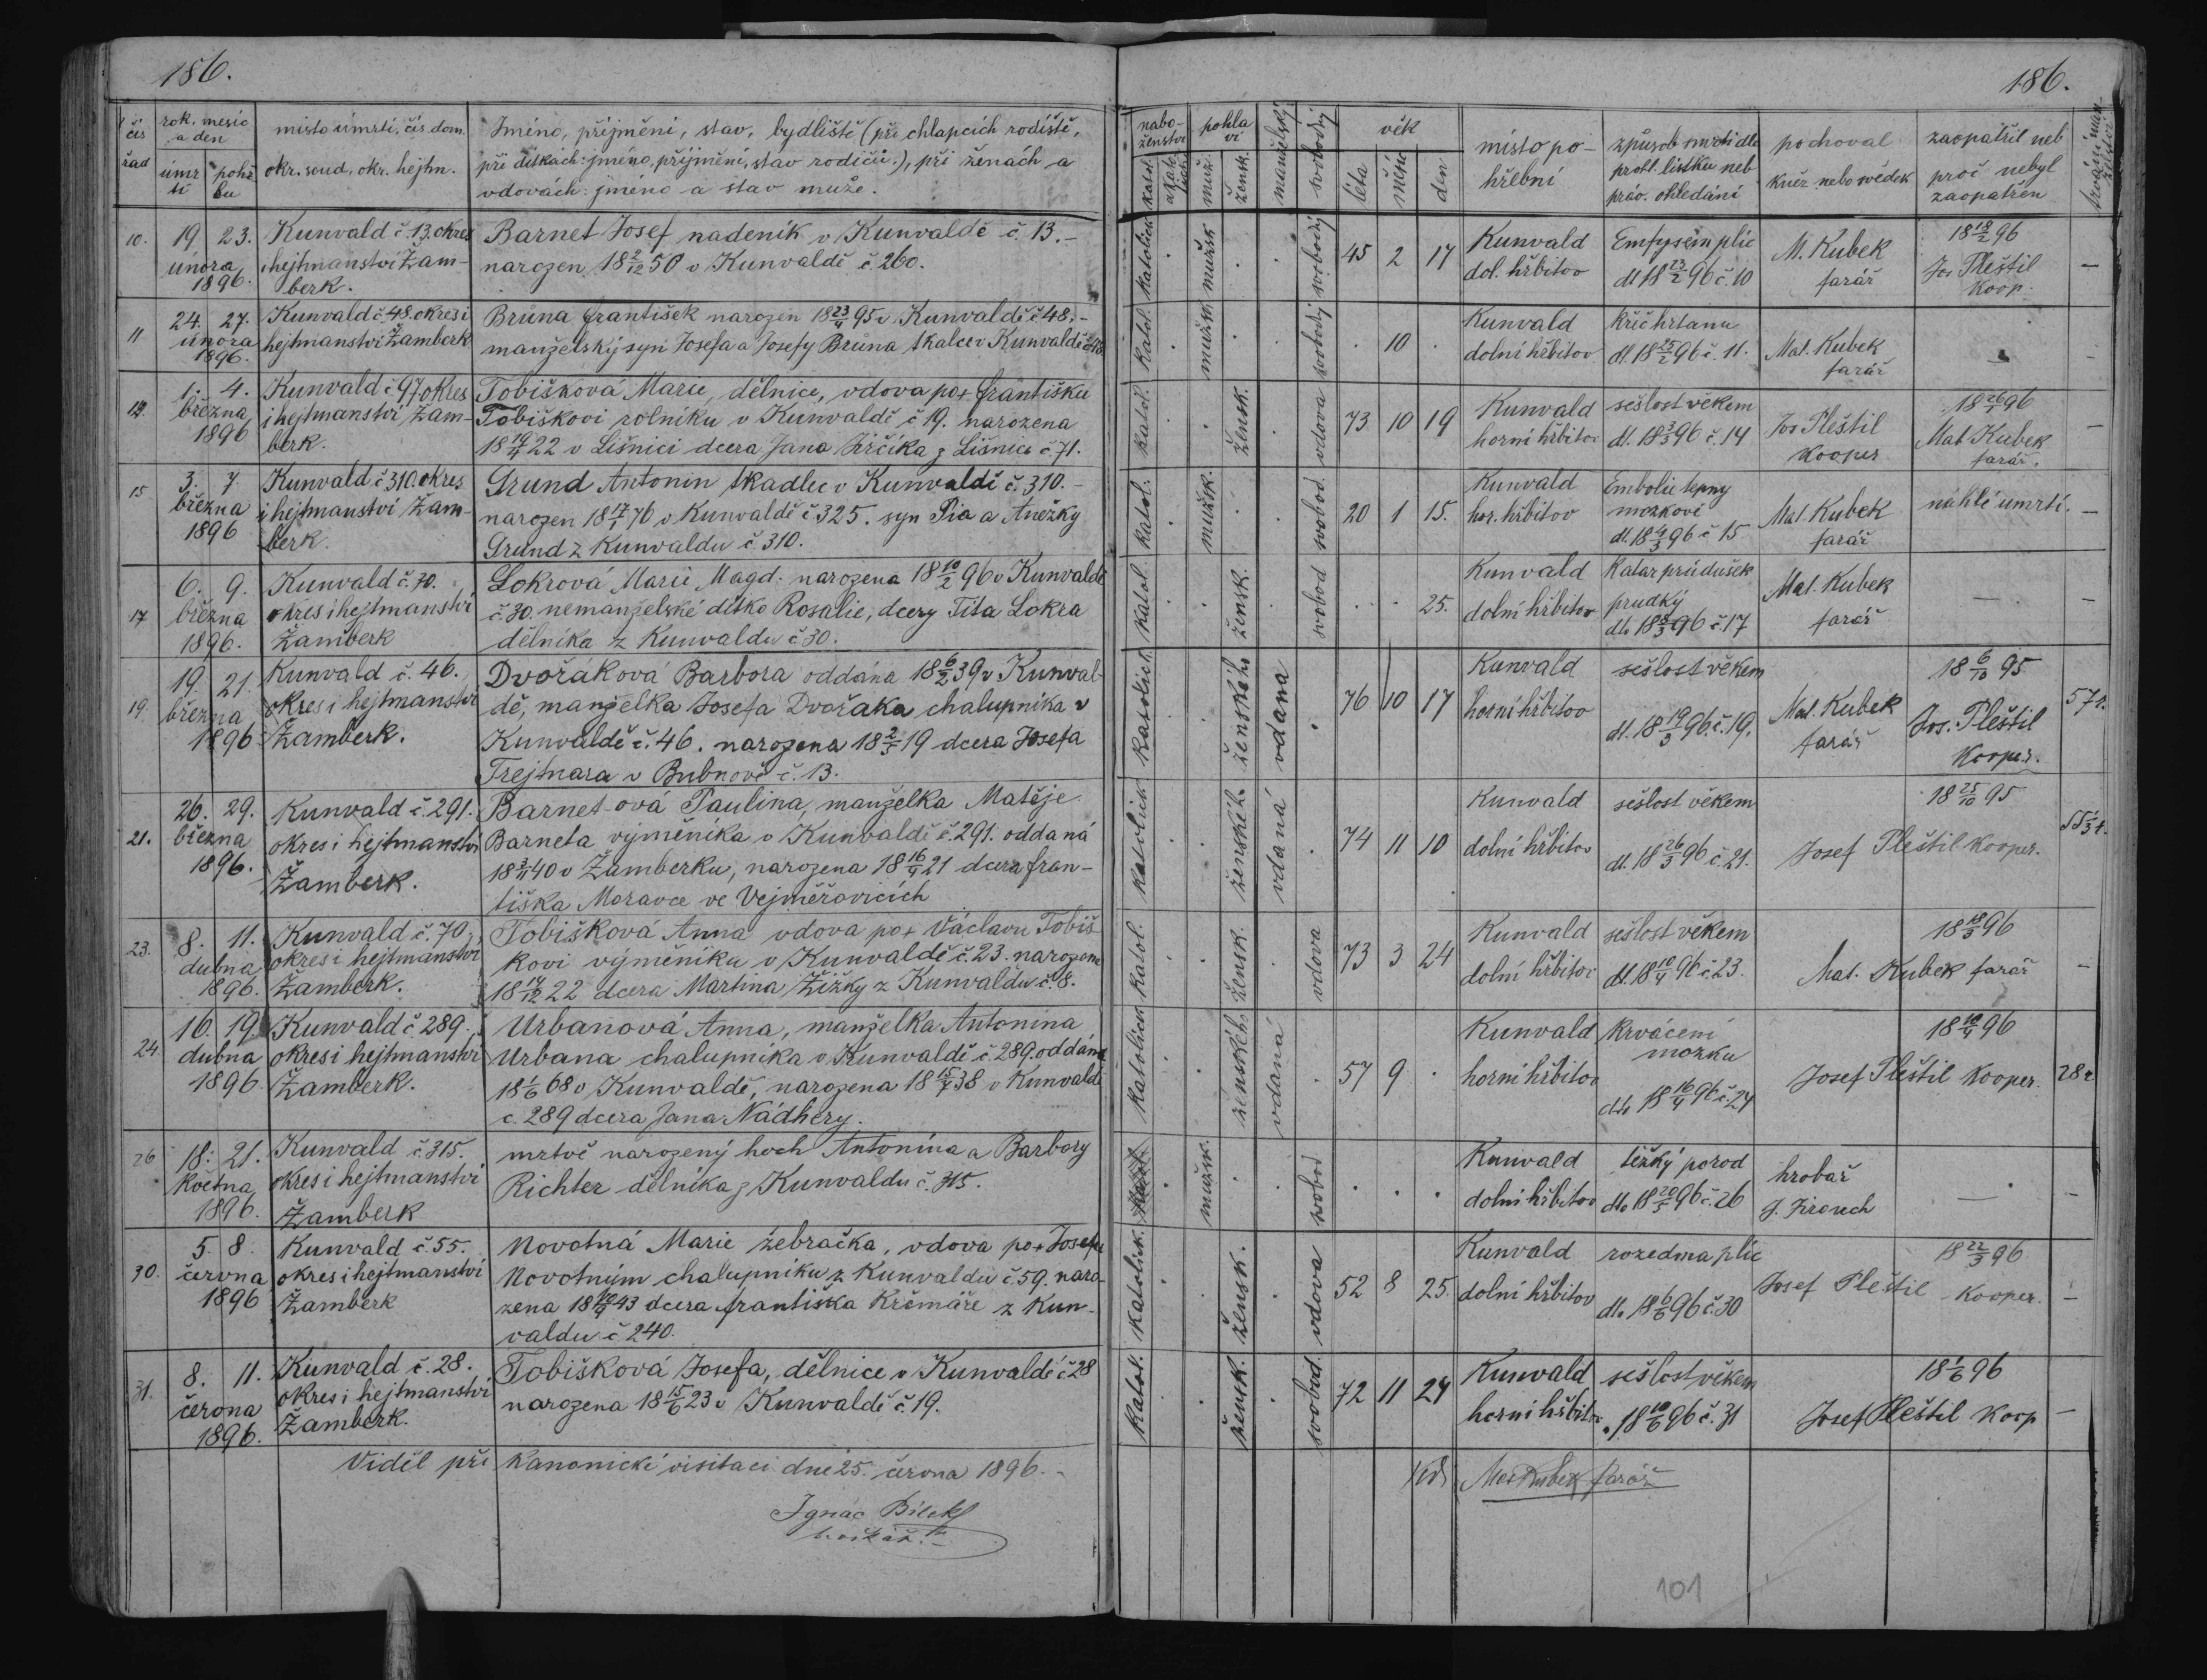 186.
čís řad
rok, mesic a den
úmrtí
pohřbu
místo úmrtí, čís. dom.
okr. soud, okr. hejtm.
Jméno, příjmění, stav, bydliště (při chlapcích rodiště,
při dítkách: jméno, příjmění, stav rodičů.), při ženách a
vdovách: jméno a stav muže.
10.
19. 23.
února
1896.
Kunvald č. 13. okres
i hejtmanství Žam-
berk.
Barnet Josef nadeník v Kunvaldě č. 13.-
narozen 18 2/12 50 v Kunvaldě č. 260.
11
24. 27.
února
1896.
Kunvald č. 48. okres i
hejtmanství Žamberk
Brůna František narozen 18 23/4 95 v Kunvaldě č 48.-
manželský syn Josefa a Josefy Brůna tkalce v Kunvaldě č 48
12.
1. 4.
března
1896
Kunvald č 97 okres
i hejtmanství Žam-
berk.
Tobišková Marie, dělnice, vdova po + Františku
Tobiškovi rolníku v Kunvaldě č 19. narozena
18 19/4 22 v Lišnici dcera Jana Jirčíka z Lišnice č. 71.
15
3. 7.
března
1896
Kunvald č 310. okres
i hejtmanství Žam-
berk.
Grund Antonin tkadlec v Kunvaldě č. 310.-
narozen 18 17/1 76 v Kunvaldě č 325. syn Pia a Anežky
Grund z Kunvaldu č 310.
17
6. 9.
března
1896.
Kunvald č. 30.
okres i hejtmanství
Žamberk
Lokrová Marie, Magd. narozena 18 10/2 96 v Kunvaldě
č. 30. nemanželské dítko Rosalie, dcery Tita Lokra
dělníka z Kunvaldu č 30.
19.
19. 21.
března
1896
Kunvald č. 46.
okres i hejtmanství
Žamberk.
Dvořáková Barbora oddána 18 6/2 39 v Kunval-
dě, manželka Josefa Dvořáka chalupníka v
Kunvaldě č. 46. narozena 18 2/5 19 dcera Josefa
Trejtnara v Bubnově č. 13.
21.
26. 29.
března
1896.
Kunvald č. 291.
okres i hejtmanství
Žamberk.
Barnet-ová Paulina, manželka Matěje
Barneta výměníka v Kunvaldě č. 291. oddaná
18 3/11 40 v Žamberku, narozena 18 16/4 21 dcera Fran-
tiška Moravce ve Vejměřovicích
23.
8. 11.
dubna
1896.
Kunvald č. 70.
okres i hejtmanství
Žamberk.
Tobišková Anna vdova po + Václavu Tobiš
kovi výměníku v Kunvaldě č. 23. narozena
18 14/12 22 dcera Martina Žižky z Kunvaldu č. 8.
24.
16. 19.
dubna
1896.
Kunvald č 289.
okres i hejtmanství
Žamberk.
Urbanová Anna, manželka Antonína
Urbana chalupníka v Kunvaldě č 289. oddána
18 1/6 68 v Kunvaldě, narozena 18 15/7 38 v Kunvaldě
č. 289 dcera Jana Nádhery.
26
18. 21.
Května
1896.
Kunvald č 315.
okres i hejtmanství
Žamberk
mrtvě narozený hoch Antonína a Barbory
Richter dělníka z Kunvaldu č. 315.
30.
5. 8.
června
1896
Kunvald č. 55.
okres i hejtmanství
Žamberk
Novotná Marie žebračka, vdova po + Josefu
Novotným chalupníku z Kunvaldu č. 59. naro-
zena 18 10/9 43 dcera Františka Krčmáře z Kun-
valdu č 240.
31.
8. 11.
června
1896.
Kunvald č. 28.
okres i hejtmanství
Žamberk.
Tobišková Josefa, dělnice v Kunvaldě č 28
narozena 18 15/6 23 v Kunvaldě č. 19.
Viděl při Kanonické visitaci dne 25. června 1896.-
Ignác Bílek
186.
nabo-ženství
pohlaví
katol.
muž.
žensk.
manželský
svobodný
věk
léta
měsíc
den
místo po-
hřební
způsob smrti dle
prohl. lístku neb
práv. ohledání
pochoval
kněz nebo svědek
zaopatřil neb
proč nebyl
zaopatřen
katolick. mužsk svobodný 45 2 17
Kunvald
dol. hřbitov
Emfysém plic
dl 18 23/2 96 č. 10
M. Kubek
farář
18 18/2 96
Jos Pleštil
Koop. –
katol. mužsk. svobodný 10
Kunvald
dolní hřbitov
Křeč hrtanu
dl. 18 25/2 96 č. 11.
Mat. Kubek
farář
katol. žensk. vdova 73 10 19
Kunvald
horní hřbitov
sešlost věkem
dl. 18 3/3 96 č. 14
Jos Pleštil
Kooper
18 26/1 96
Mat Kubek
farář.
katol. mužsk. svobod 20 1 15.
Kunvald
hor. hřbitov
Embolie tepny
mozkové
dl. 18 4/3 96 č 15
Mat. Kubek
farář
náhlé úmrtí.
katol. žensk. svobod 25.
Kunvald
dolní hřbitov
Katar průdušek
prudký
dle 18 8/3 96 č. 17
Mat. Kubek
farář
katolick. ženského vdaná 76 10 17
Kunvald
horní hřbitov
sešlost věkem
dl. 18 19/3 96 č. 19.
Mat. Kubek
farář
18 6/10 95
Jos. Pleštil
Kooper.
57 r.
katolick. ženského vdaná 74 11 10
Kunvald
dolní hřbitov
sešlost věkem
dl. 18 26/3 96 č. 21.
18 25/10 95
Josef Pleštil Kooper.
katol. žensk. vdova 73 3 24
Kunvald
dolní hřbitov
sešlost věkem
dl. 18 10/4 96 č. 23.
18 18/3 96
Mat. Kubek farář
katolick ženského vdaná 57 9
Kunvald
horní hřbitov
Krvácení
mozku
dle 18 16/4 96 č. 24
18 10/4 96
Josef Pleštil Kooper.
28 r
mužsk. svobod
Kunvald
dolní hřbitov
těžký porod
dle 18 20/5 96 č. 26
hrobař
J. Jirouch
katolick. žensk. vdova 52 8 25.
Kunvald
dolní hřbitov
rozedma plic
dle 18 6/6 96 č. 30
18 22/3 96
Josef Pleštil Kooper.
katol. žensk. svobod. 72 11 24
Kunvald
horní hřbitov
sešlost věkem
18 10/6 96 č. 31
18 1/6 96
Josef Pleštil Koop
Mat Kubek farář
101